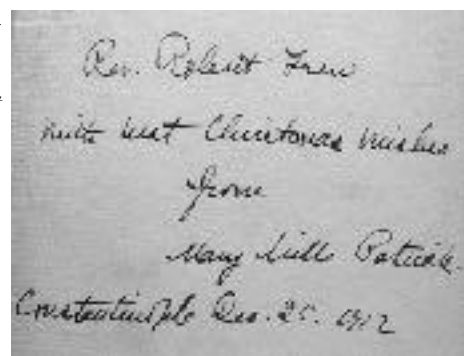 Rev. Robert Frew
with best Christmas wishes
from
Mary Mills Patrick.
Constantinople Dec. 25. 1912